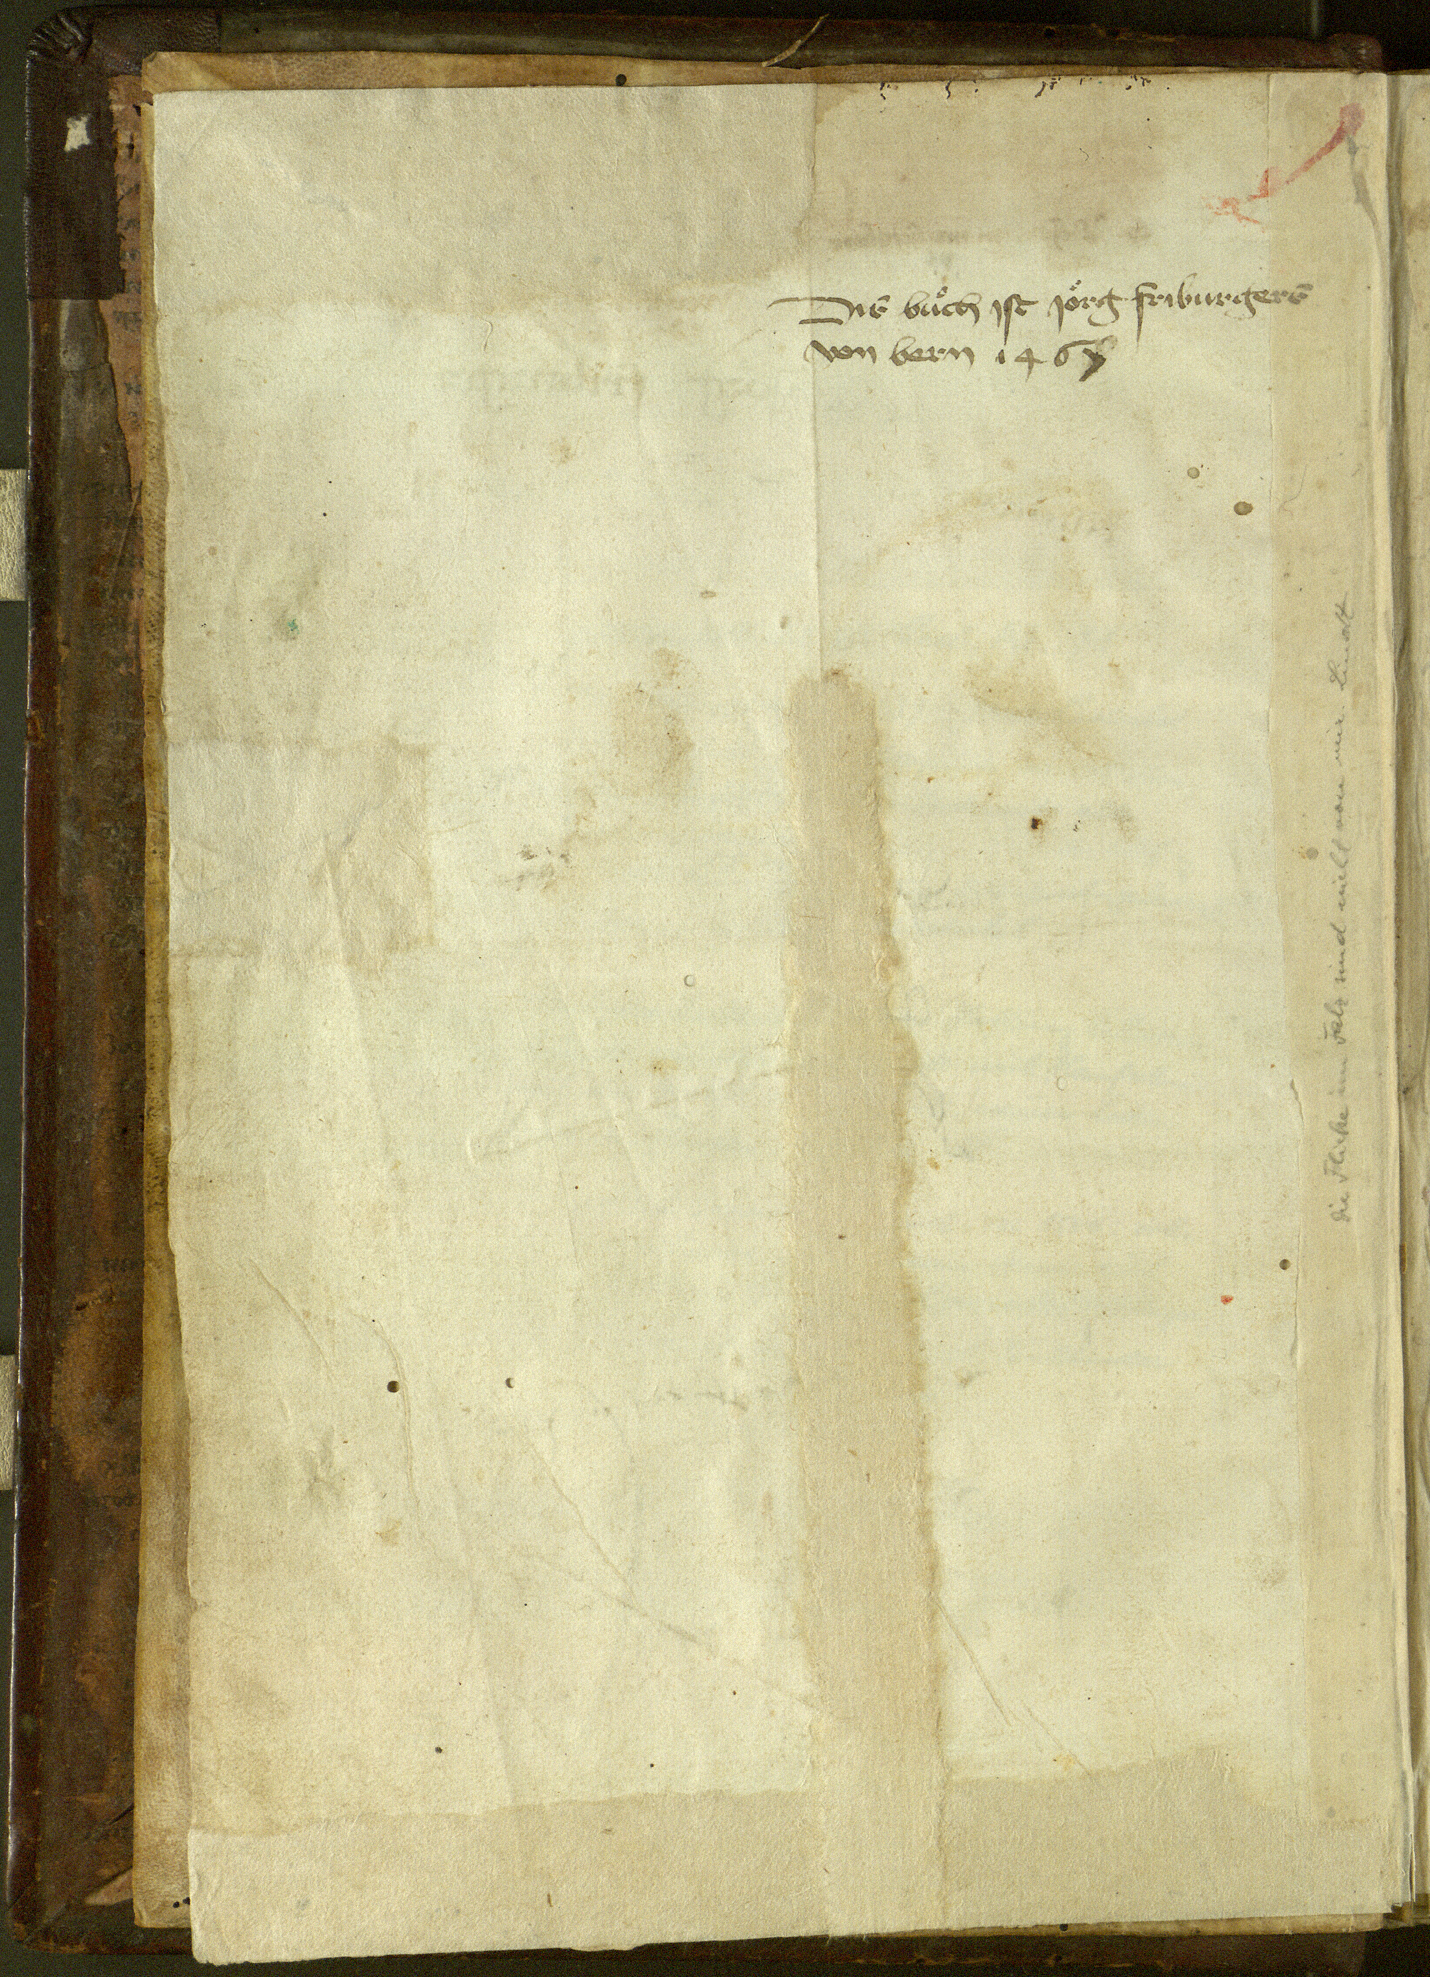 Dis bůch ist jörg friburgers
von bern 1467
die Flicke im Falz sind nicht von mir. Lindt